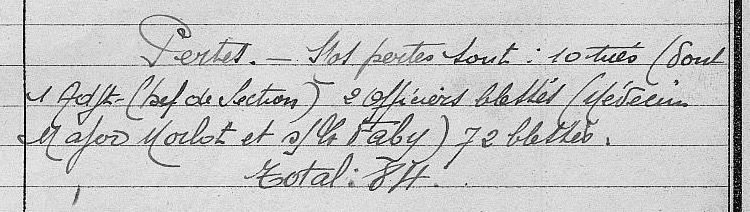 Pertes. — Nos pertes sont : 10 tués (dont
1 Adjt - Chef de Section) 2 Officiers blessés (Médecin
Major Morlot et s/Lt Faby) 72 blessés.
Total : 84.